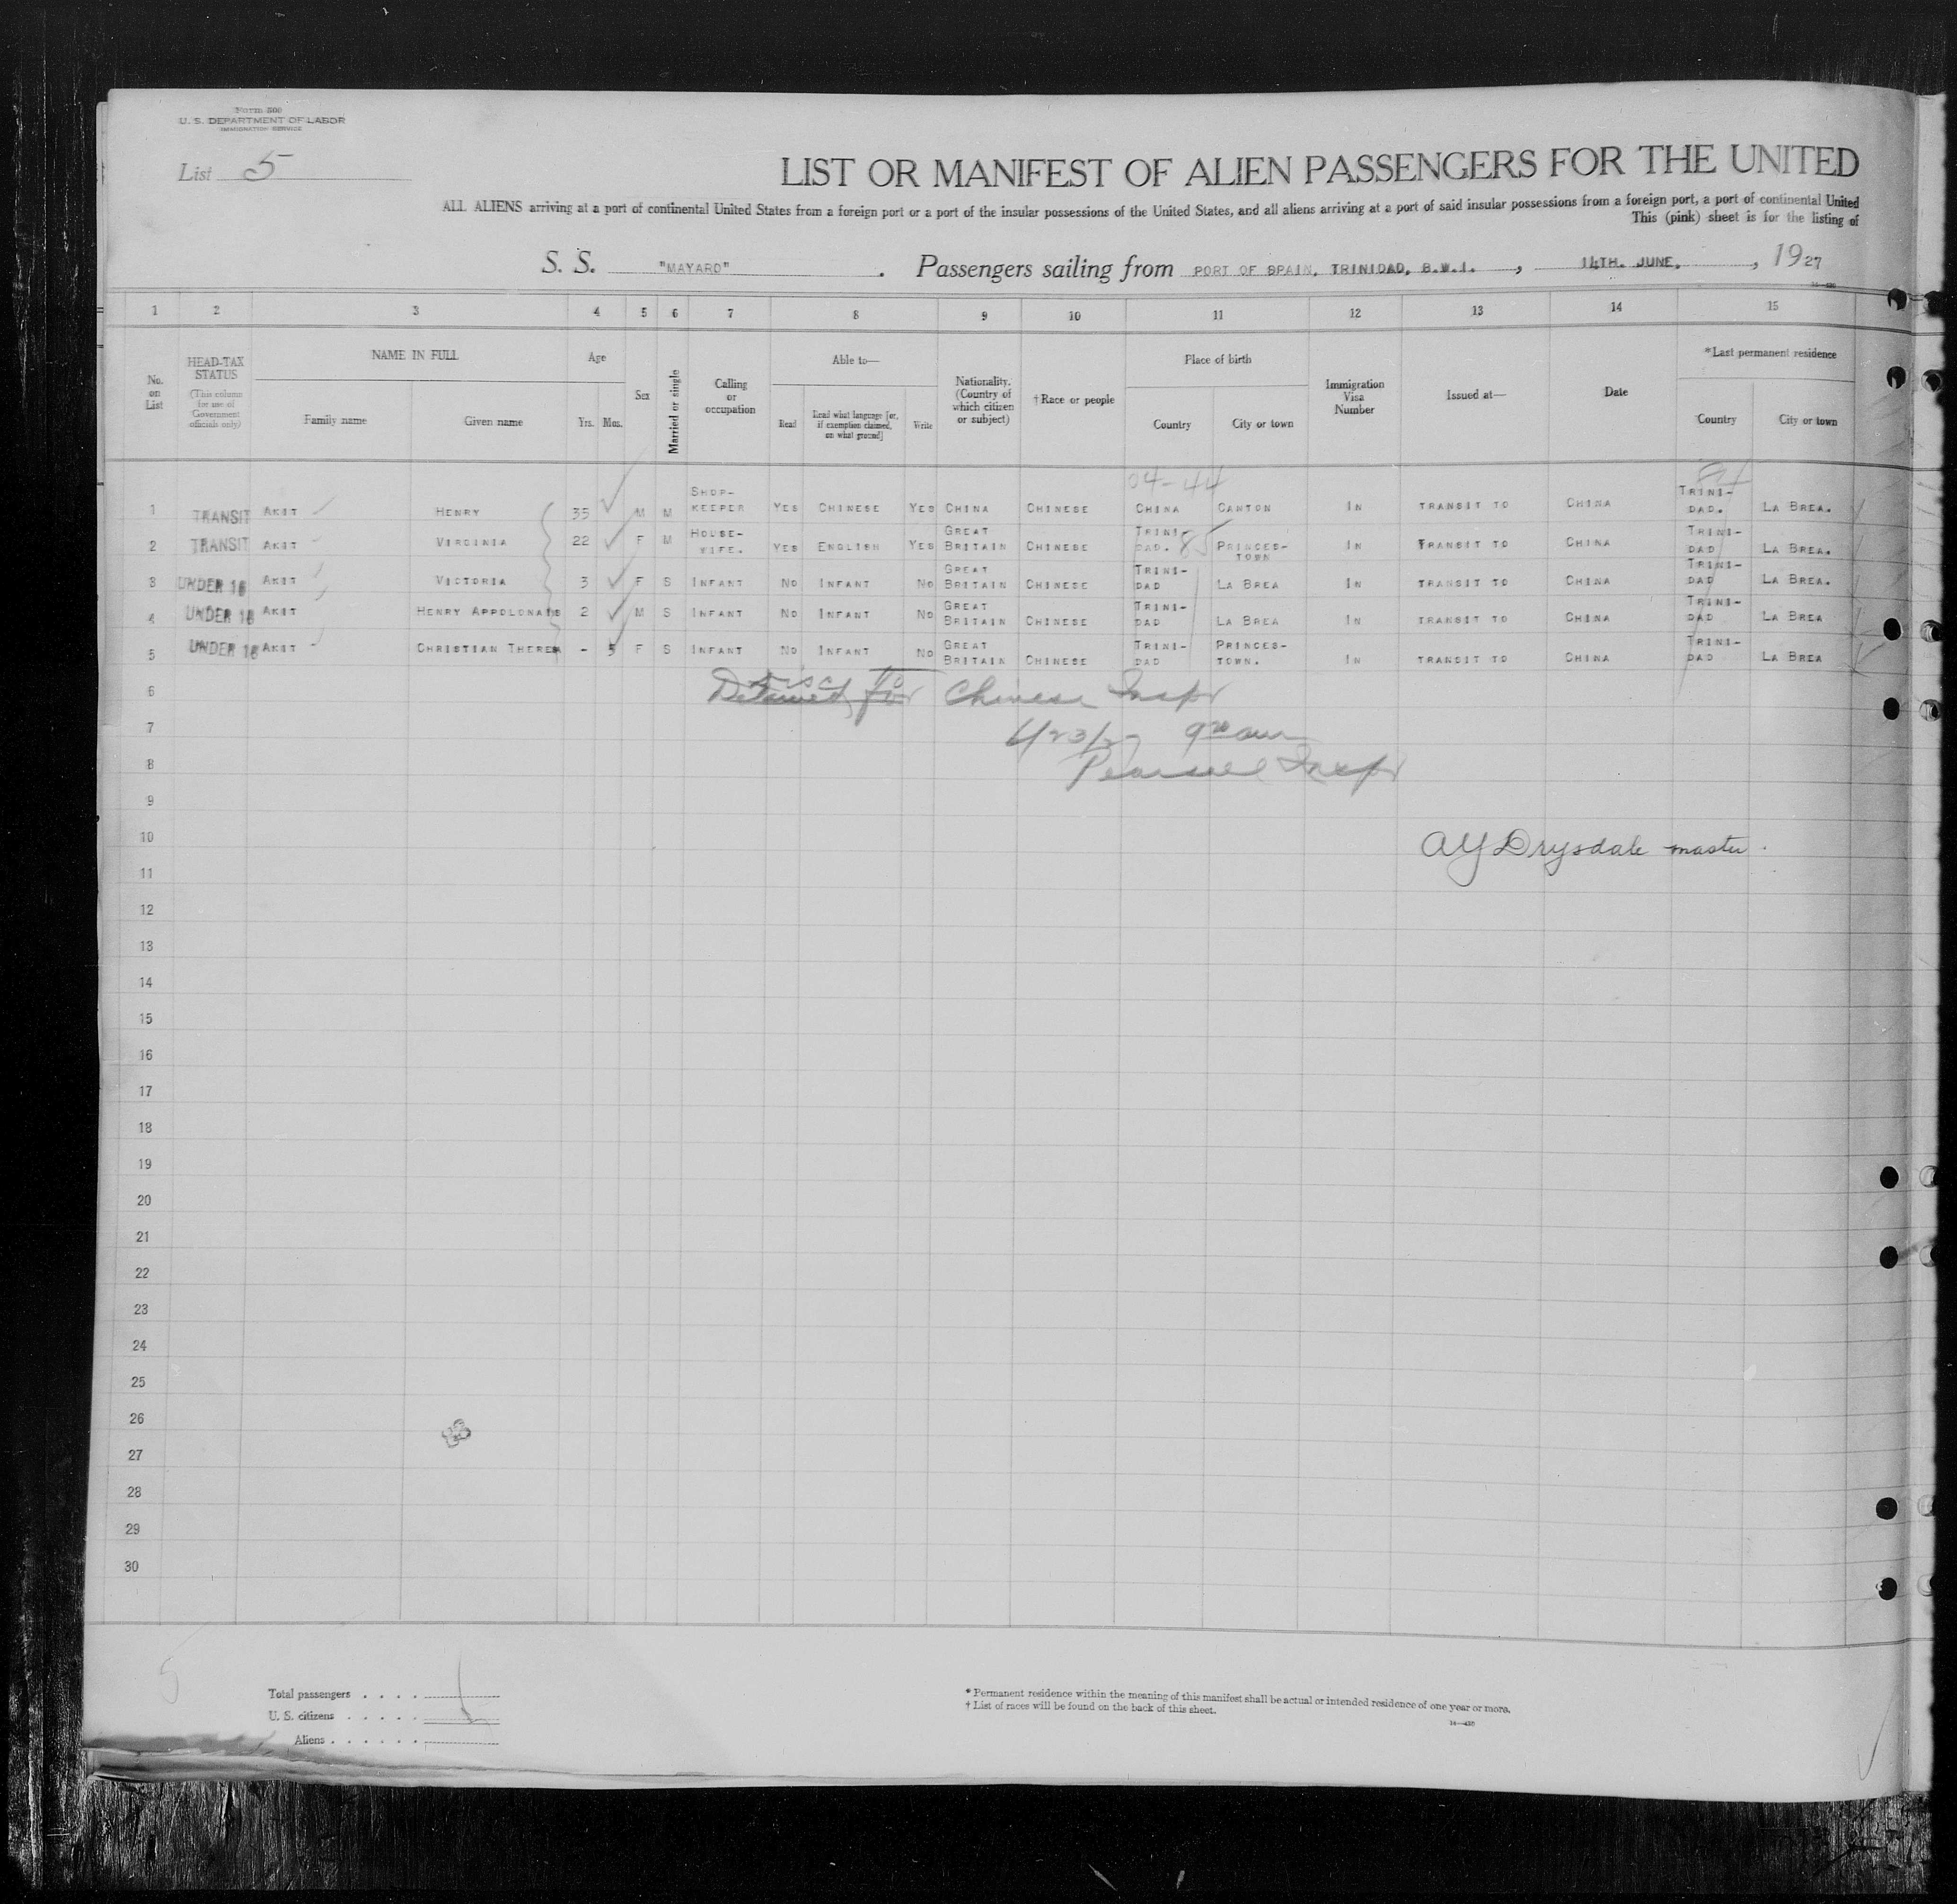 Form 500
U. S. DEPARTMENT OF LABOR
IMMIGRATION SERVICE
List 5
LIST OR MANIFEST OF ALIEN PASSENGERS FOR THE UNITED
ALL ALIENS arriving at a port of continental United States from a foreign port or a port of the insular possessions of the United States, and all aliens arriving at a port of said insular possessions from a foreign port, a port of continental United
This (pink) sheet is for the listing of
S. S. "MAYARO" . Passengers sailing from PORT OF SPAIN, TRINIDAD, B.W.I. , 14TH. JUNE. , 1927
1 2 3 4 5 6 7 8 9 10 11 12 13 14 15
No. on List
HEAD-TAX STATUS (This column for use of Government officials only)
NAME IN FULL
Family name Given name
Age
Yrs. Mos.
Sex
Married or single
Calling or occupation
Able to—
Read Read what language [or, if exemption claimed, on what ground] Write
Nationality. (Country of which citizen or subject)
†Race or people
Place of birth
Country City or town
Immigration Visa Number
Issued at—
Date
*Last permanent residence
Country City or town
04-44
1 TRANSIT AKIT HENRY 35 M M SHOP-KEEPER YES CHINESE YES CHINA CHINESE CHINA CANTON IN TRANSIT TO CHINA TRINI-DAD. LA BREA.
2 TRANSIT AKIT VIRGINIA 22 F M HOUSE-WIFE. YES ENGLISH YES GREAT BRITAIN CHINESE TRINI-DAD. 85 PRINCES-TOWN IN TRANSIT TO CHINA TRINI-DAD LA BREA.
3 UNDER 16 AKIT VICTORIA 3 F S INFANT NO INFANT NO GREAT BRITAIN CHINESE TRINI-DAD LA BREA IN TRANSIT TO CHINA TRINI-DAD LA BREA.
4 UNDER 16 AKIT HENRY APPOLONAIS 2 M S INFANT NO INFANT NO GREAT BRITAIN CHINESE TRINI-DAD LA BREA IN TRANSIT TO CHINA TRINI-DAD LA BREA
5 UNDER 16 AKIT CHRISTIAN THERESA - 5 F S INFANT NO INFANT NO GREAT BRITAIN CHINESE TRINI-DAD PRINCES-TOWN. IN TRANSIT TO CHINA TRINI-DAD LA BREA
6 Disc to
Detained for Chinese Inspr
7 6/23/27 9 20 am
8 Inspr
9
10 AY Drysdale master.
11
12
13
14
15
16
17
18
19
20
21
22
23
24
25
26
27
28
29
30
5
Total passengers . . . .
U. S. citizens . . . . .
Aliens . . . . . .
* Permanent residence within the meaning of this manifest shall be actual or intended residence of one year or more.
† List of races will be found on the back of this sheet.